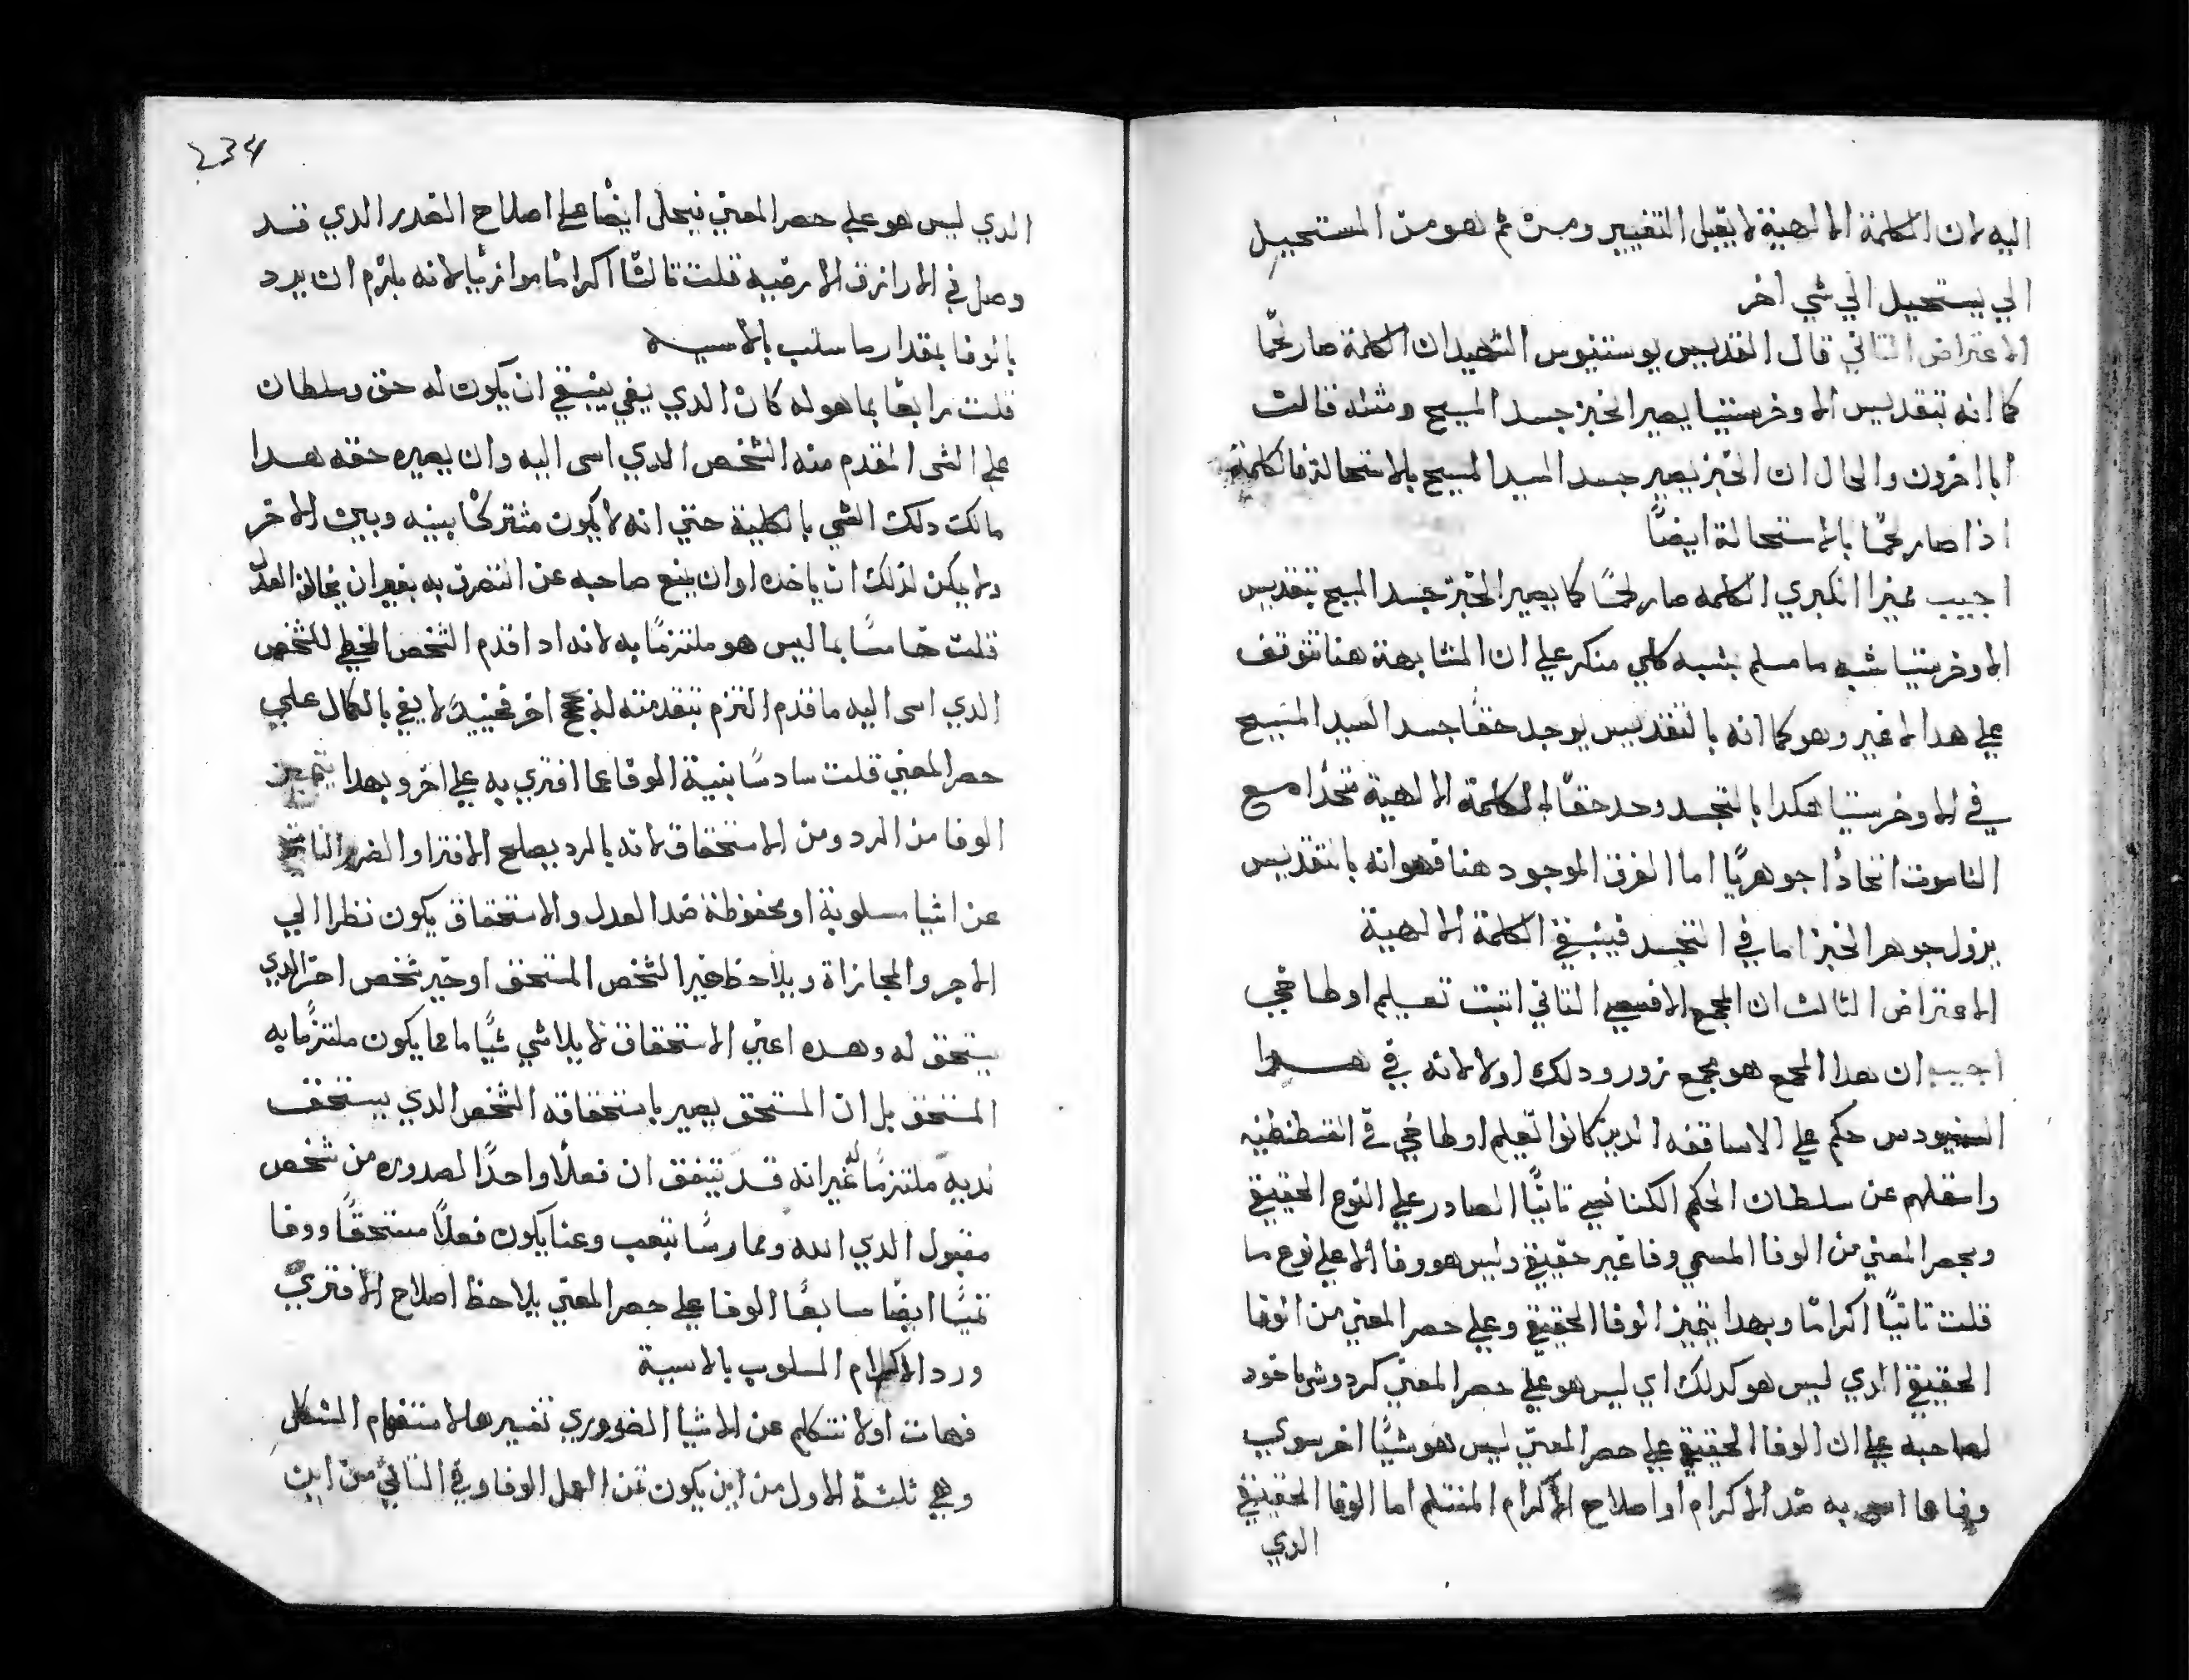 اليه لان الكلمة الالهية لا يقبل التغيير ومن ثم هو من المستحيل
الي يستحيل الي شي اخر
الاعتراض التاني قال القديس يوستنيوس الشهيد ان الكلمة صار لحمًا
كما انه بتقديس الاوخرستيا يصير الخبز جسد المسيح ومثله قالت
ابا اخرون والحال ان الخبز يصير جسد السيد المسيح بالاستحالة فالكلمة
اذا صار لحمًا بالاستحالة ايضًا
اجيب مميزا الكبري الكلمه صار لحمًا كما يصير الخبز جسد المسيح بتقديس
الاوخرستيا شبه ما مسلم بشبه كلي منكر علي ان المشابهة هنا تتوقف
علي هدا لا غير وهو كما انه بالتقديس يوجد حقًا جسد السيد المسيح
في الاوخرستيا هكدا بالتجسد وجد حقًا الكلمة الالهية متحدًا مع
الناسوت اتحادًا جوهريًا اما الفرق الموجود هنا فهو انه بالتقديس
يزول جوهر الخبز اما في التجسد فيبقي الكلمة الالهية
الاعتراض الثالث ان المجمع الافسسي التاني اتبت تعليم اوطاخي
اجيب ان هدا المجمع هو مجمع زور ودلك اولا لانه في هدا
السنيودس حكم علي الاساقفه الدين كانوا تعليم اوطاخي في القسطنطنيه
واسقلهم عن سلطان الحكم الكنايسي تانيًا الصادر علي النوع الحقيقي
وبحصر المعني من الوفا المسمي وفا غير حقيقي وليس هو وفا الا علي نوع ما
قلت تانيًا اكرامًا وبهدا يتميز الوفا الحقيقي وعلي حصر المعني من الوفا
الحقيقي الدي ليس هو كدلك اي ليس هو علي حصر المعني كرد وشي ماخود
لصاحبه علي ان الوفا الحقيقي علي حصر المعني ليس هو شيًا اخر سوي
وفا ما اسي به ضد الاكرام او اصلاح الاكرام المنثلم اما الوفا الحقيقي
الدي
234
الدي ليس هو علي حصر المعني فيحل ايضًا علي اصلاح القدر الدي قد
وصل في الارازق الارضيه قلت تالتًا اكرامًا موازيًا لانه يلزم ان يرد
بالوفا بمقدار ما سلب بالاسيه
قلت رابعًا بما هو له كان الدي يفي ينبغي ان يكون له حق وسلطان
علي الشي المقدم منه الشخص الدي اسي اليه وان يصيره حقه هدا
مالك دلك الشي بالكلية حتي انه لا يكون مشتركًا بينه وبين الاخر
ولا يمكن لذلك ان ياخده او ان يمنع صاحبه عن التصرف به بغير ان يخالف العدل
قلت خامسًا بما ليس هو ملتزمًا به لانه ادا قدم الشخص المخطي للشخص
الدي اسي اليه ما قدم التزم بتقدمته له اخر فحينيدً لا يفي بالكمال علي
حصر المعني قلت سادسًا بنية الوفا عما افتري به علي اخر وبهدا يتميز
الوفا من الرد ومن الاستحقاق لانه بالرد يصلح الافترا والضرر الناتج
عن اشيا مسلوبة او محفوظة ضد العدل والاستحقاق يكون نظرا الي
الاجر والمجازاة ويلاحظ خير الشخص المستحق او خير شخص اخر الدي
يستحق له وهده اعني الاستحقاق لا يلاشي شيًا ما مما يكون ملتزمًا به
المستحق بل ان المستحق يصير باستحقاقه الشخص الدي يستحق
لديه ملتزمًا له غير انه قد يتفق ان فعلًا واحدًا لصدوره من شخص
مقبول الدي الله وممارسًا بتعب وعنا يكون فعلًا مستحقًا ووفا
تميًا ايضًا سابعًا الوفا علي حصر المعني يلاحظ اصلاح الافتري
ورد الاكرام المسلوب بالاسية
فهات اولا نتكلم عن الاشيا الضروري تفسيرها لاستفهام المشكل
وهي ثلثة الاول من اين يكون تمن العمل الوفاوي التاني من اين